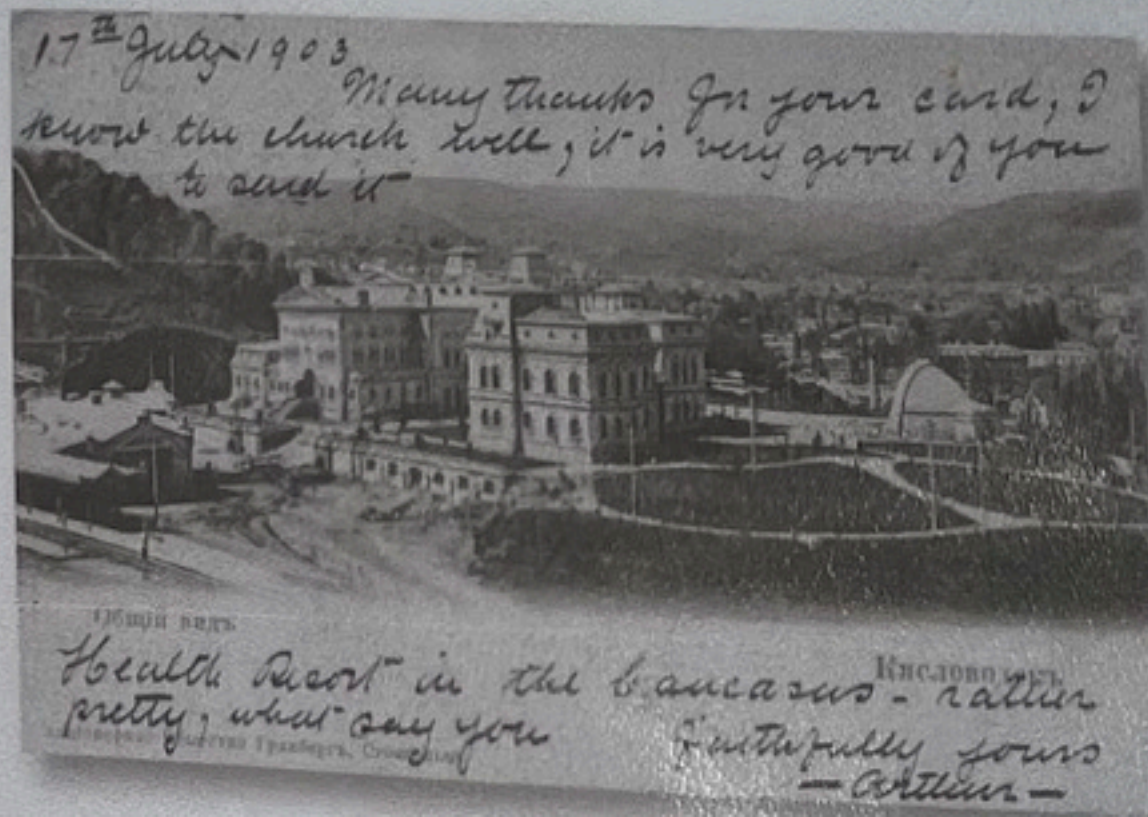 17th July 1903
Many thanks for your card, I
know the church well, it is very good of you
to send it
Общій видъ
Кисловодскъ
Health Resort in the Caucasus - rather
pretty, what say you
Гранбергъ,
Faithfully yours
— Arthur —